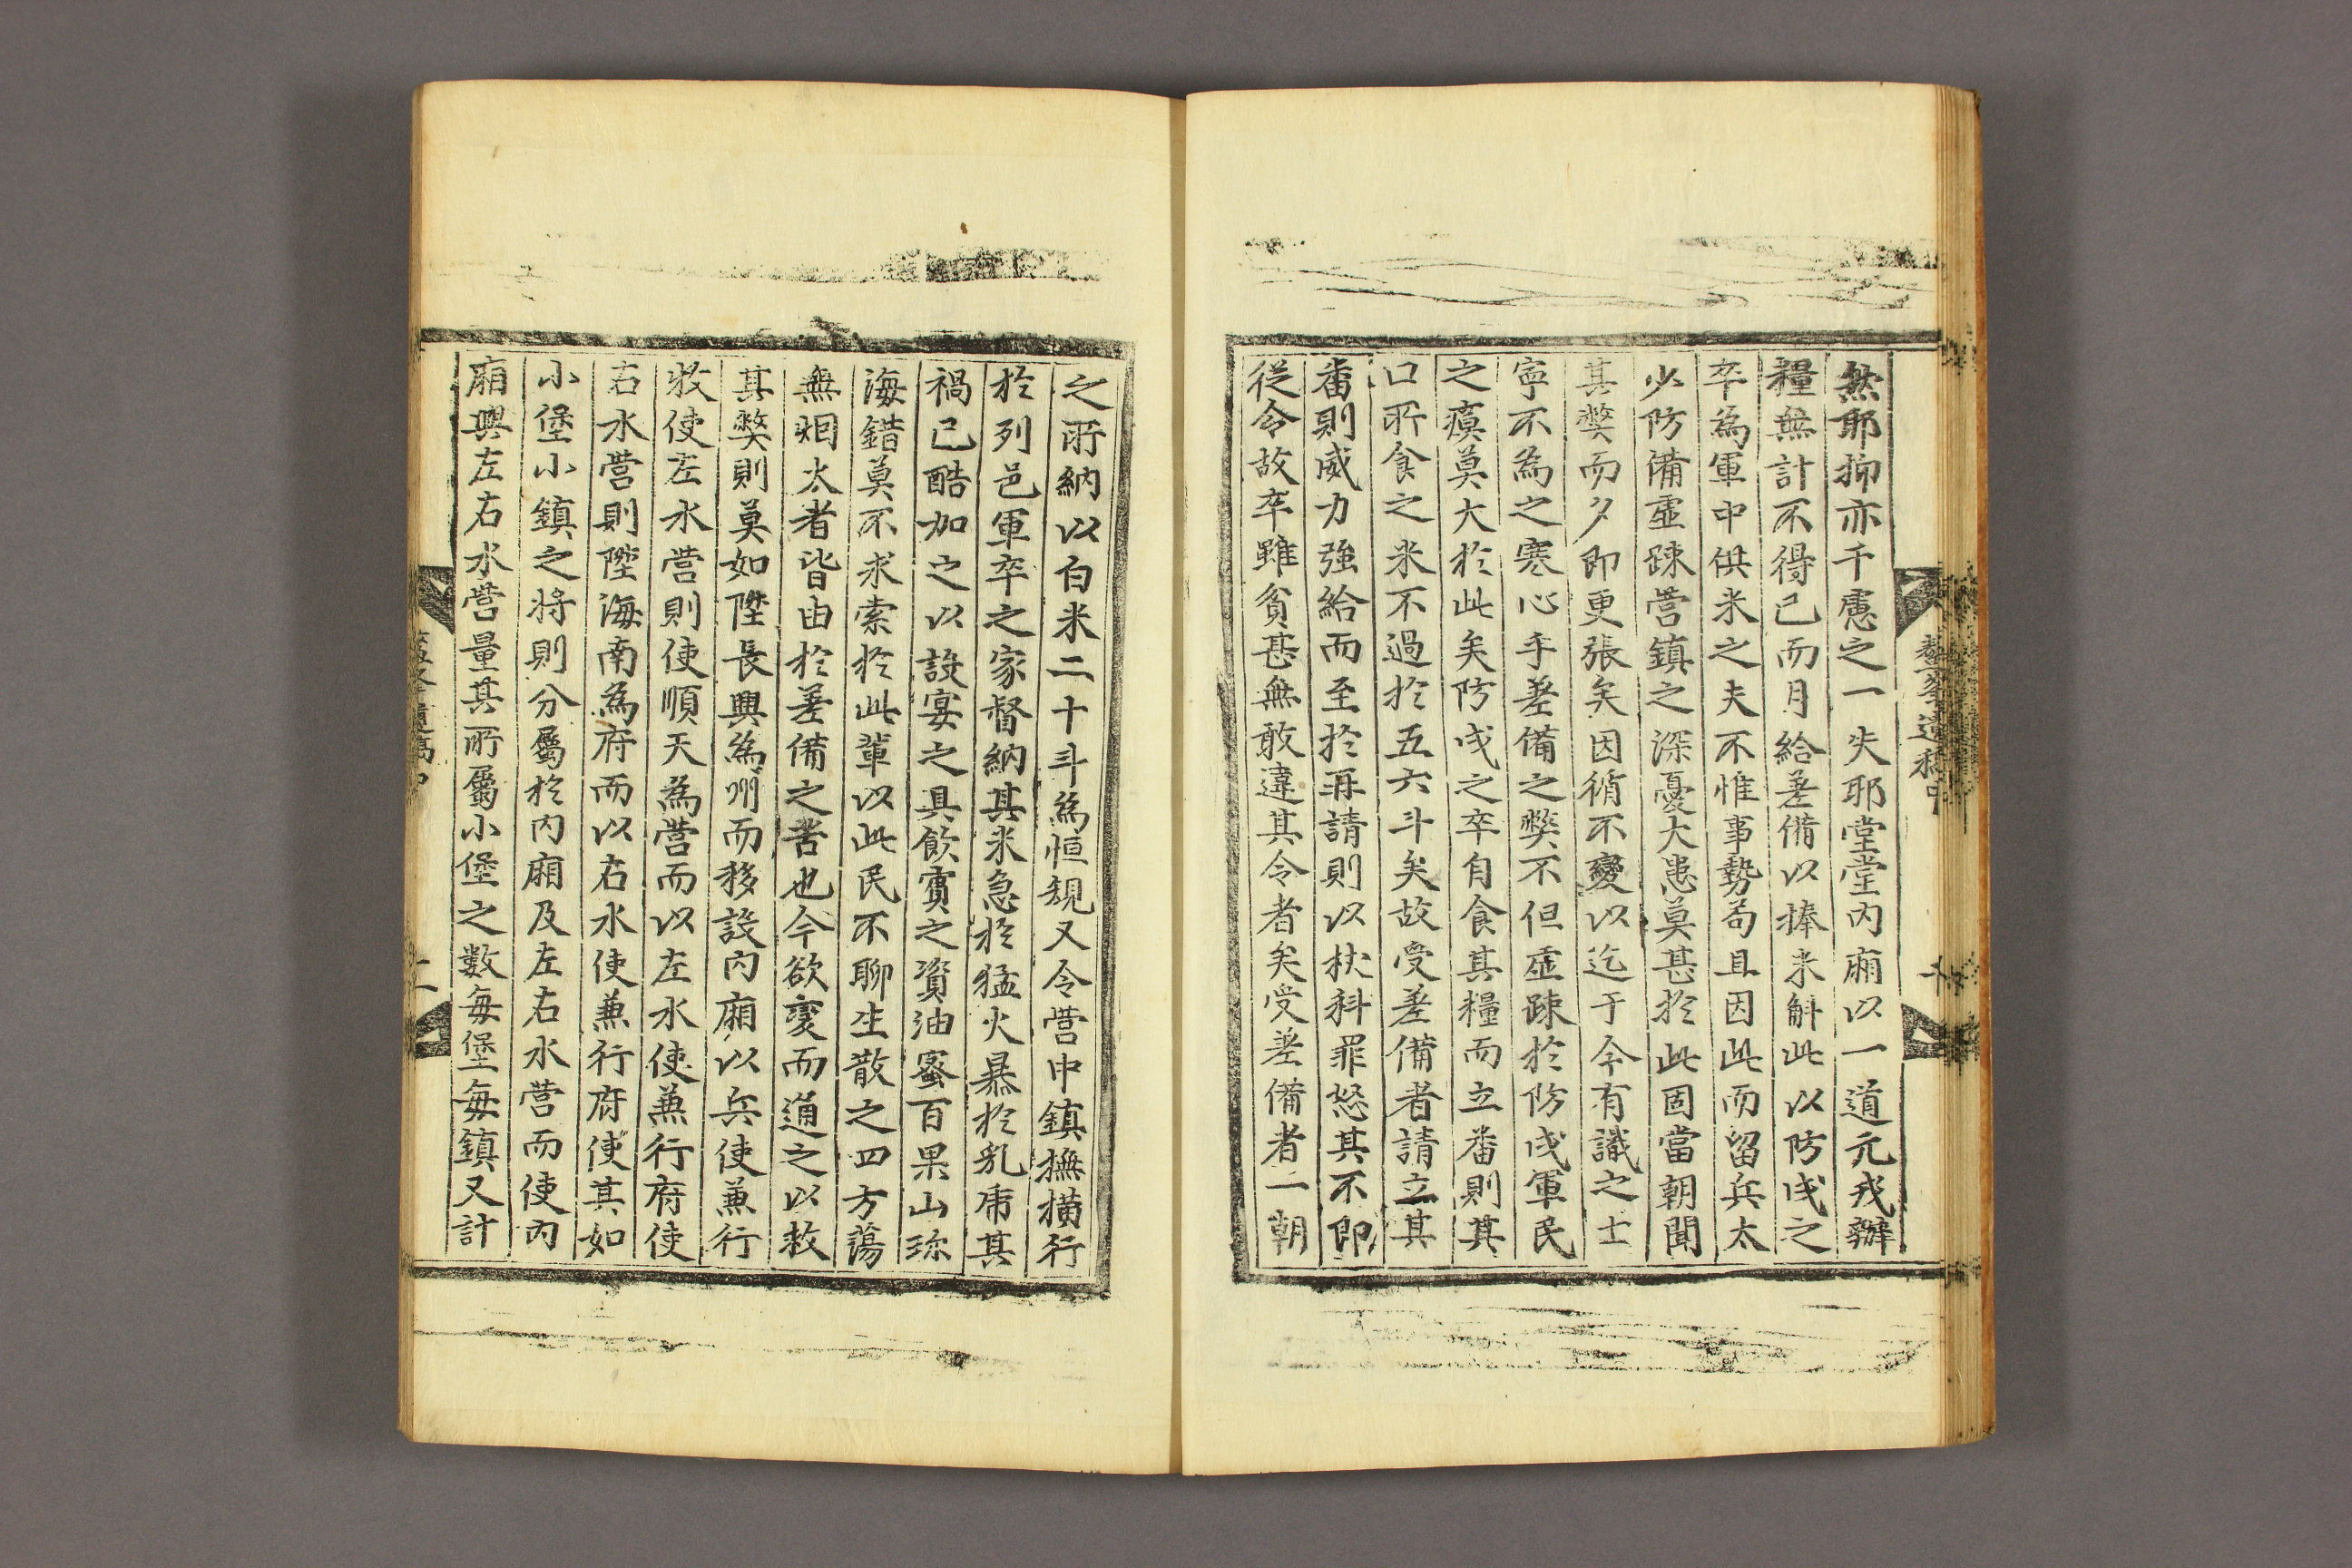 鰲峯遺稿中 十
然耶抑亦千慮之一失耶堂堂內廂以一道元戎辦
糧無計不得已而月給差備以捧米斛此以防戍之
卒為軍中供米之夫不惟事勢苟且因此而留兵太
少防備虛踈營鎭之深憂大患莫甚於此固當朝聞
其弊而夕即更張矣因循不變以迄于今有識之士
寧不為之寒心乎差備之弊不但虛踈於防戍軍民
之瘼莫大於此矣防戍之卒自食其糧而立番則其
口所食之米不過於五六斗矣故受差備者請立其
番則威力強給而至於再請則以杖科罪怒其不即
從令故卒雖貧甚無敢違其令者矣受差備者一朝
之所納以白米二十斗為恒規又令營中鎭撫橫行
於列邑軍卒之家督納其米急於猛火暴於乳虎其
禍已酷加之以設宴之具飮賓之資油蜜百果山珎
海錯莫不求索於此輩以此民不聊生散之四方蕩
無烟火者皆由於差備之苦也今欲變而通之以救
其弊則莫如陞長興為州而移設內廂以兵使兼行
牧使左水營則使順天為營而以左水使兼行府使
右水營則陞海南為府而以右水使兼行府使其如
小堡小鎭之將則分屬於內廂及左右水營而使內
廂與左右水營量其所屬小堡之數每堡每鎭又計